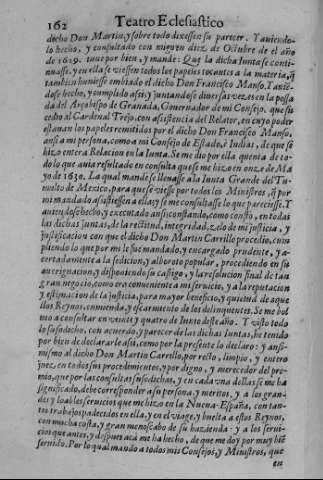 162 Teatro Eclesiastico
dicho Don Martin, y sobre todo dixessen su parecer. Y auiendo-
lo hecho, y consultado con migo en diez de Octubre de el año
de 1629. tuue por bien, y mande: Que la dicha Iunta se conti-
nuasse, y en ella se viessen todos los papeles tocantes a la materia, q̃
tambien huuiesse embiado el dicho Don Francisco Manso. Y auiē-
dose hecho, y cumplido assi, y juntandose diuersas vezes en la possa
da del Arçobispo de Granada, Gouernador de mi Consejo, que su-
cedio al Cardenal Trejo, con asistencia del Relator, en cuyo poder
estauan los papeles remitidos por el dicho Don Francisco Manso,
ansi a mi persona, como a mi Consejo de Estado, è Indias, de que se
hizo entera Relacion en la Iunta. Se me dio por ella quenta de to-
do lo que auia resultado en consulta que se me hizo en onze de Ma
yo de 1630. La qual mande se llenasse a la Iunta Grande del Tu-
multo de Mexico, para que se viesse por todos los Ministros, q̃ por
mi mandado asistiessen a ella, y se me consultasse lo que pareciesse. Y
auiendose hecho, y executado ansi, constando, como consto, en todas
las dichas juntas, de la rectitud, integridad, zelo de mi justicia, y
justificacion con que el dicho Don Martin Carrillo procedio, cum
pliendo lo que por mi le fue mandado, y encargado prudente, y a-
certadamente a la sedicion, y alboroto popular, procediendo en su
aueriguacion, y disponiendo su castigo, y la resolucion final de tan
gran negocio, como era conueniente a mi seruicio, y a la reputacion
y estimacion de la justicia, para mayor beneficio, y quietud de aque
llos Reynos, enmienda, y escarmiento de los delinquentes. Se me bol
uio a consultar en veinte y quatro de Iunio deste año. Y visto todo
lo susodicho, con acuerdo, y parecer de las dichas Iuntas, he tenido
por bien de declararle assi, como por la presente lo declaro: y ansi-
mismo al dicho Don Martin Carrillo, por recto, limpio, y entero
juez, en todos sus procedimientos, y por digno, y merecedor del pre-
mio, que por las consultas susodichas, y en cada vna dellas se me ha
significado, debe corresponder a su persona, y meritos, y a los gran-
des y loables seruicios que me hizo en la Nueua-España, con tan-
tos trabajos padecidos en ella, y en el viage, y buelta a estos Reynos,
con mucha costa, y gran menoscabo de su hazienda: y a los serui-
cios que antes, y despues acà me ha hecho, de que me doy por muy biē
seruido. Por lo qual mando a todos mis Consejos, y Ministros, que
en